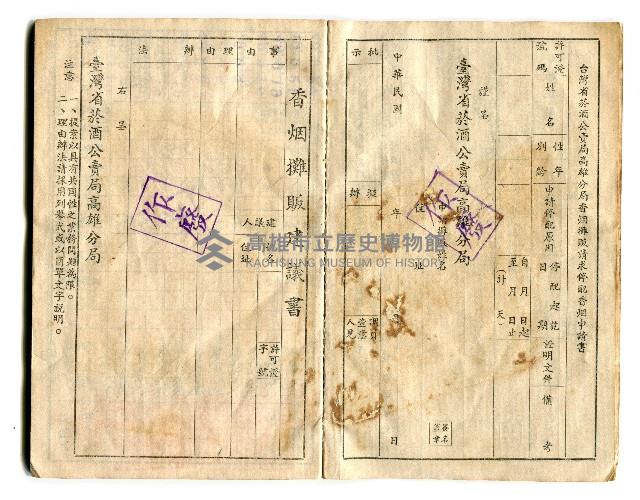 台灣省菸酒公賣局高雄分局香烟攤販請求停配香烟申請書
許可證號碼
姓名
性別
年齡
申請停配原因
停配起訖日期
自 月 日起
至 月 日止
(計 天)
證明文件
備考
謹呈
臺灣省菸酒公賣局高雄分局
作廢
住址
簽名
蓋章
中華民國 年 月 日
批示
擬辦
調查員查意見
香烟攤販建議書
建議人
姓名
住址
許可證
字 號
事由
理由
辦法
作廢
右呈
臺灣省菸酒公賣局高雄分局
注意
一、提案以具有共同性之業務問題為限。
二、理由辦法請採用列舉式或以簡單文字說明。
高雄市立歷史博物館
KAOHSIUNG MUSEUM OF HISTORY